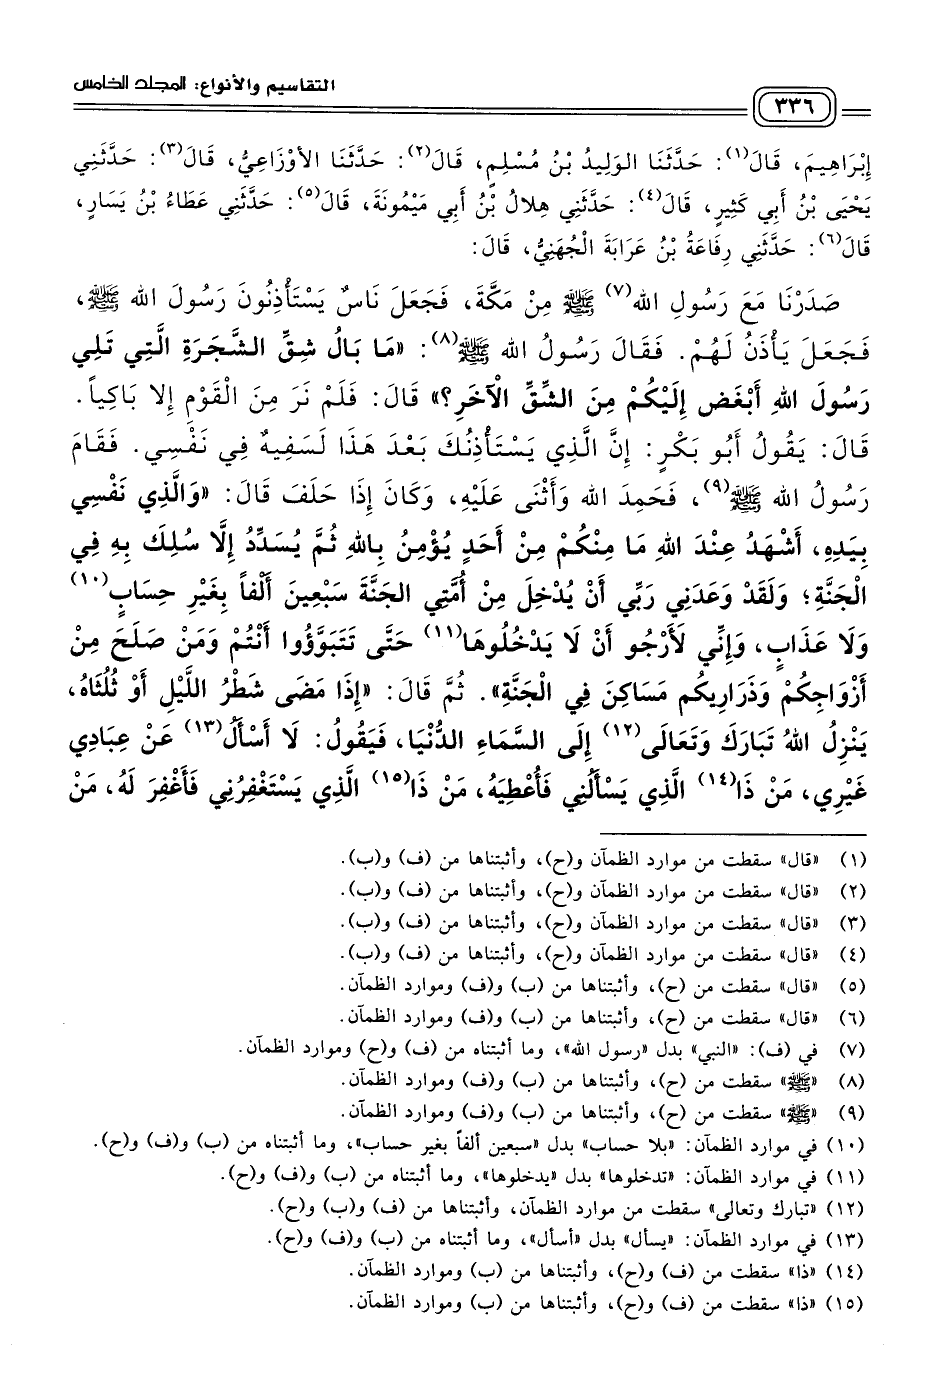 التقاسيم والأنواع: المجلد الخامس
٣٣٦
إِبْرَاهِيمَ، قَالَ(١): حَدَّثَنَا الوَلِيدُ بْنُ مُسْلِمٍ، قَالَ(٢): حَدَّثَنَا الأَوْزَاعِيُّ، قَالَ(٣): حَدَّثَنِي
يَحْيَى بْنُ أَبِي كَثِيرٍ، قَالَ(٤): حَدَّثَنِي هِلَالُ بْنُ أَبِي مَيْمُونَةَ، قَالَ(٥): حَدَّثَنِي عَطَاءُ بْنُ يَسَارٍ،
قَالَ(٦): حَدَّثَنِي رِفَاعَةُ بْنُ عَرَابَةَ الْجُهَنِيُّ، قَالَ:
صَدَرْنَا مَعَ رَسُولِ اللهِ(٧) ﷺ مِنْ مَكَّةَ، فَجَعَلَ نَاسٌ يَسْتَأْذِنُونَ رَسُولَ اللهِ ﷺ،
فَجَعَلَ يَأْذَنُ لَهُمْ. فَقَالَ رَسُولُ اللهِ ﷺ(٨): «مَا بَالُ شِقِّ الشَّجَرَةِ الَّتِي تَلِي
رَسُولَ اللهِ أَبْغَضَ إِلَيْكُمْ مِنَ الشِّقِّ الْآخَرِ؟» قَالَ: فَلَمْ نَرَ مِنَ الْقَوْمِ إِلا بَاكِياً.
قَالَ: يَقُولُ أَبُو بَكْرٍ: إِنَّ الَّذِي يَسْتَأْذِنُكَ بَعْدَ هَذَا لَسَفِيهٌ فِي نَفْسِي. فَقَامَ
رَسُولُ اللهِ ﷺ(٩)، فَحَمِدَ اللهَ وَأَثْنَى عَلَيْهِ، وَكَانَ إِذَا حَلَفَ قَالَ: «وَالَّذِي نَفْسِي
بِيَدِهِ، أَشْهَدُ عِنْدَ اللهِ مَا مِنْكُمْ مِنْ أَحَدٍ يُؤْمِنُ بِاللهِ ثُمَّ يُسَدِّدُ إِلَّا سُلِكَ بِهِ فِي
الْجَنَّةِ؛ وَلَقَدْ وَعَدَنِي رَبِّي أَنْ يُدْخِلَ مِنْ أُمَّتِي الجَنَّةَ سَبْعِينَ أَلْفاً بِغَيْرِ حِسَابٍ(١٠)
وَلَا عَذَابٍ، وَإِنِّي لَأَرْجُو أَنْ لَا يَدْخُلُوهَا(١١) حَتَّى تَتَبَوَّؤُوا أَنْتُمْ وَمَنْ صَلَحَ مِنْ
أَزْوَاجِكُمْ وَذَرَارِيكُم مَسَاكِنَ فِي الْجَنَّةِ». ثُمَّ قَالَ: «إِذَا مَضَى شَطْرُ اللَّيْلِ أَوْ ثُلُثَاهُ،
يَنْزِلُ اللهُ تَبَارَكَ وَتَعَالَى(١٢) إِلَى السَّمَاءِ الدُّنْيَا، فَيَقُولُ: لَا أَسْأَلُ(١٣) عَنْ عِبَادِي
غَيْرِي، مَنْ ذَا(١٤) الَّذِي يَسْأَلُنِي فَأُعْطِيَهُ، مَنْ ذَا(١٥) الَّذِي يَسْتَغْفِرُنِي فَأَغْفِرَ لَهُ، مَنْ
(١) «قال» سقطت من موارد الظمآن و(ح)، وأثبتناها من (ف) و(ب).
(٢) «قال» سقطت من موارد الظمآن و(ح)، وأثبتناها من (ف) و(ب).
(٣) «قال» سقطت من موارد الظمآن و(ح)، وأثبتناها من (ف) و(ب).
(٤) «قال» سقطت من موارد الظمآن و(ح)، وأثبتناها من (ف) و(ب).
(٥) «قال» سقطت من (ح)، وأثبتناها من (ب) و(ف) وموارد الظمآن.
(٦) «قال» سقطت من (ح)، وأثبتناها من (ب) و(ف) وموارد الظمآن.
(٧) في (ف): «النبي» بدل «رسول الله»، وما أثبتناه من (ف) و(ح) وموارد الظمآن.
(٨) «ﷺ» سقطت من (ح)، وأثبتناها من (ب) و(ف) وموارد الظمآن.
(٩) «ﷺ» سقطت من (ح)، وأثبتناها من (ب) و(ف) وموارد الظمآن.
(١٠) في موارد الظمآن: «بلا حساب» بدل «سبعين ألفاً بغير حساب»، وما أثبتناه من (ب) و(ف) و(ح).
(١١) في موارد الظمآن: «تدخلوها» بدل «يدخلوها»، وما أثبتناه من (ب) و(ف) و(ح).
(١٢) «تبارك وتعالى» سقطت من موارد الظمآن، وأثبتناها من (ف) و(ب) و(ح).
(١٣) في موارد الظمآن: «يسأل» بدل «أسأل»، وما أثبتناه من (ب) و(ف) و(ح).
(١٤) «ذا» سقطت من (ف) و(ح)، وأثبتناها من (ب) وموارد الظمآن.
(١٥) «ذا» سقطت من (ف) و(ح)، وأثبتناها من (ب) وموارد الظمآن.